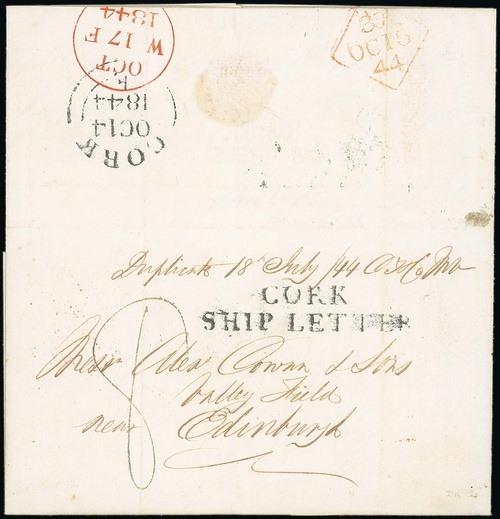 1844
W 17 F
OCT
1844
OC 14
CORK
OC 15
44
Duplicate 18 July /44
CORK
SHIP LETTER
Messrs Alexr Cowan & Sons
Valley Field
near Edinburgh
8